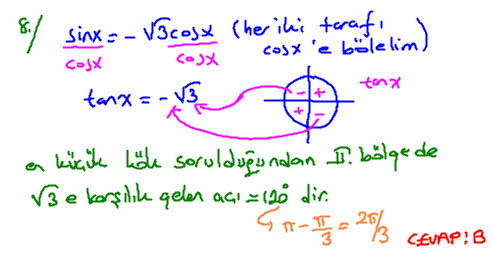 8./ sinx/cosx = - √3cosx/cosx (her iki tarafı cosx'e bölelim)
tanx = -√3
- +
+ -
tanx
en küçük kök sorulduğundan II. bölgede
√3 e karşılık gelen açı = 120° dir.
π - π/3 = 2π/3
CEVAP: B